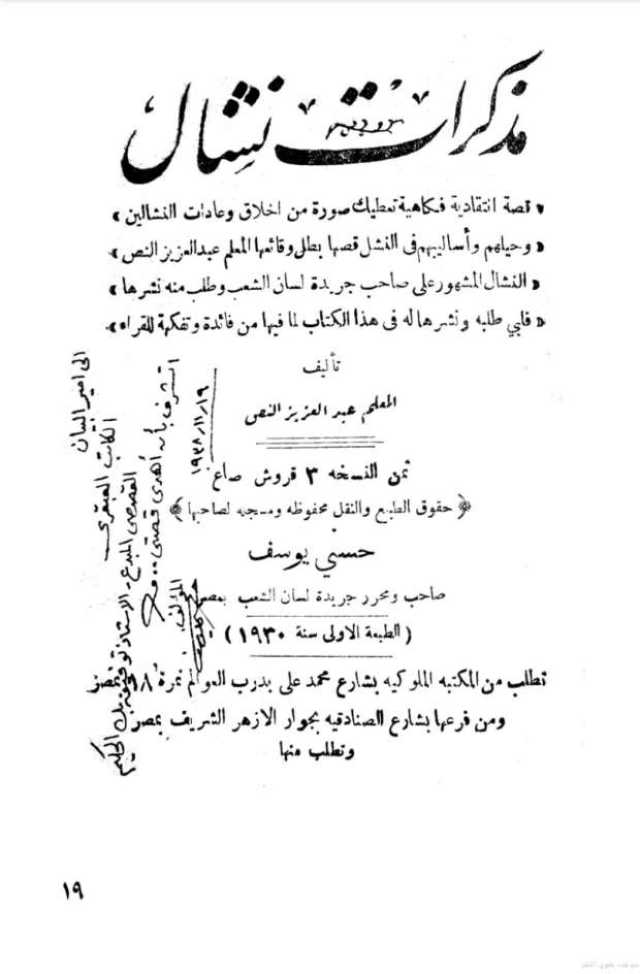 مذكرات نشال
« قصة انتقادية فكاهية تعطيك صورة من اخلاق وعادات النشالين »
« وحيلهم وأساليبهم فى النشل قصها بطل وقائعها المعلم عبدالعزيز النص »
« النشال المشهور على صاحب جريدة لسان الشعب وطلب منه نشرها »
« فلبي طلبه ونشرها له فى هذا الكتاب لما فيها من فائدة وتفكهة للقراء »
تأليف
المعلم عبد العزيز النص
ثمن النسخه ٣ قروش صاغ
﴿ حقوق الطبع والنقل محفوظه ومسجبه لصاحبها ﴾
حسني يوسف
صاحب ومحرر جريدة لسان الشعب بمصر
( الطبعة الاولى سنة ١٩٣٠ )
تطلب من المكتبه الملوكيه بشارع محمد على بدرب العوالم نمرة ٨ بمصر
ومن فرعها بشارع الصنادقيه بجوار الازهر الشريف بمصر
وتطلب منها
الى امير البيان
الكاتب العبقرى
القصصى المبدع - الاستاذ توفيق بك الحكيم
اتشرف بأن أهدى قصتى ..
المؤلف
١٩٣٨/١١/١٩
١٩